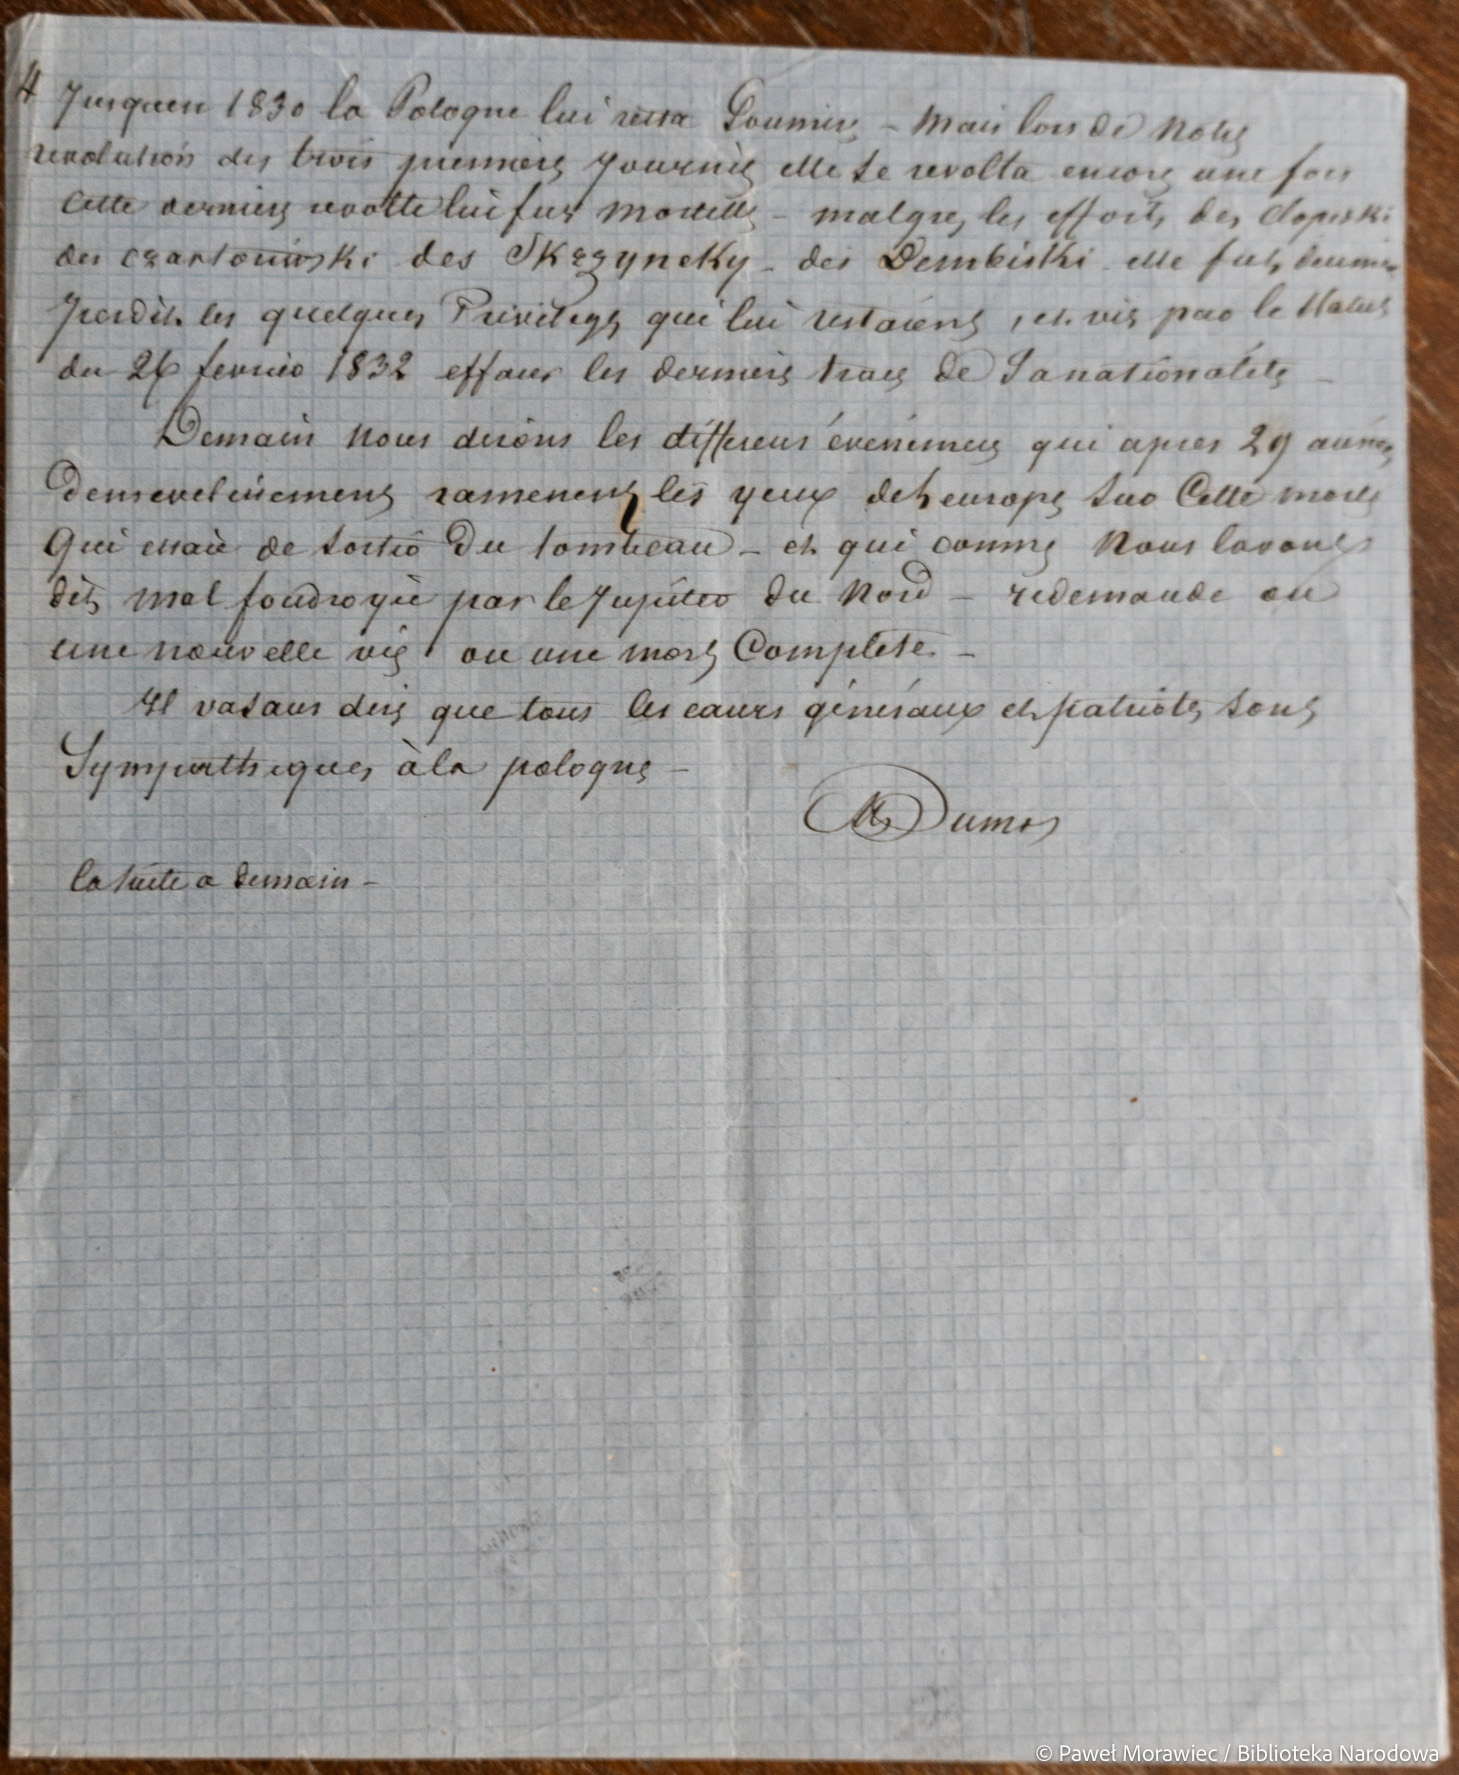 4 Jusquen 1830 la Pologne lui resta Soumise - Mais lors de Notre
revolution des trois premiers Journeés elle se revolta encore une fois
Cette derniere revolte lui fut mortelle - malgre les efforts des Clopiski
des czartoriniski des Skrzynecky - des Dembiski elle fut soumise
Perdit les quelques Privileges qui lui restaient, et vit par le Statut
du 26 fevrier 1832 effacer les derniers traces de Sanationalite -
Demain Nous dirons les differens événemens qui apres 29 années
Densevelissement ramenent les yeux de leurope sur Cette morte
Qui essaie de sortir Du tombeau - et qui comme Nous lavons
dit mal foudroyée par le Jupiter du Nord - redemande ou
une nouvelle vie ou une mort Complete -
Il vasans dire que tous les cœurs généraux et patriotes sont
Sympathiques à la pologne -
Al Dumas
la suite a demain -
© Paweł Morawiec / Biblioteka Narodowa